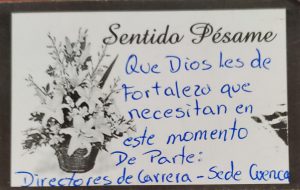 Sentido Pésame
Que Dios les de
Fortalezo que
necesitan en
este momento
De Parte:
Directores de Carrera - Sede Cuenca